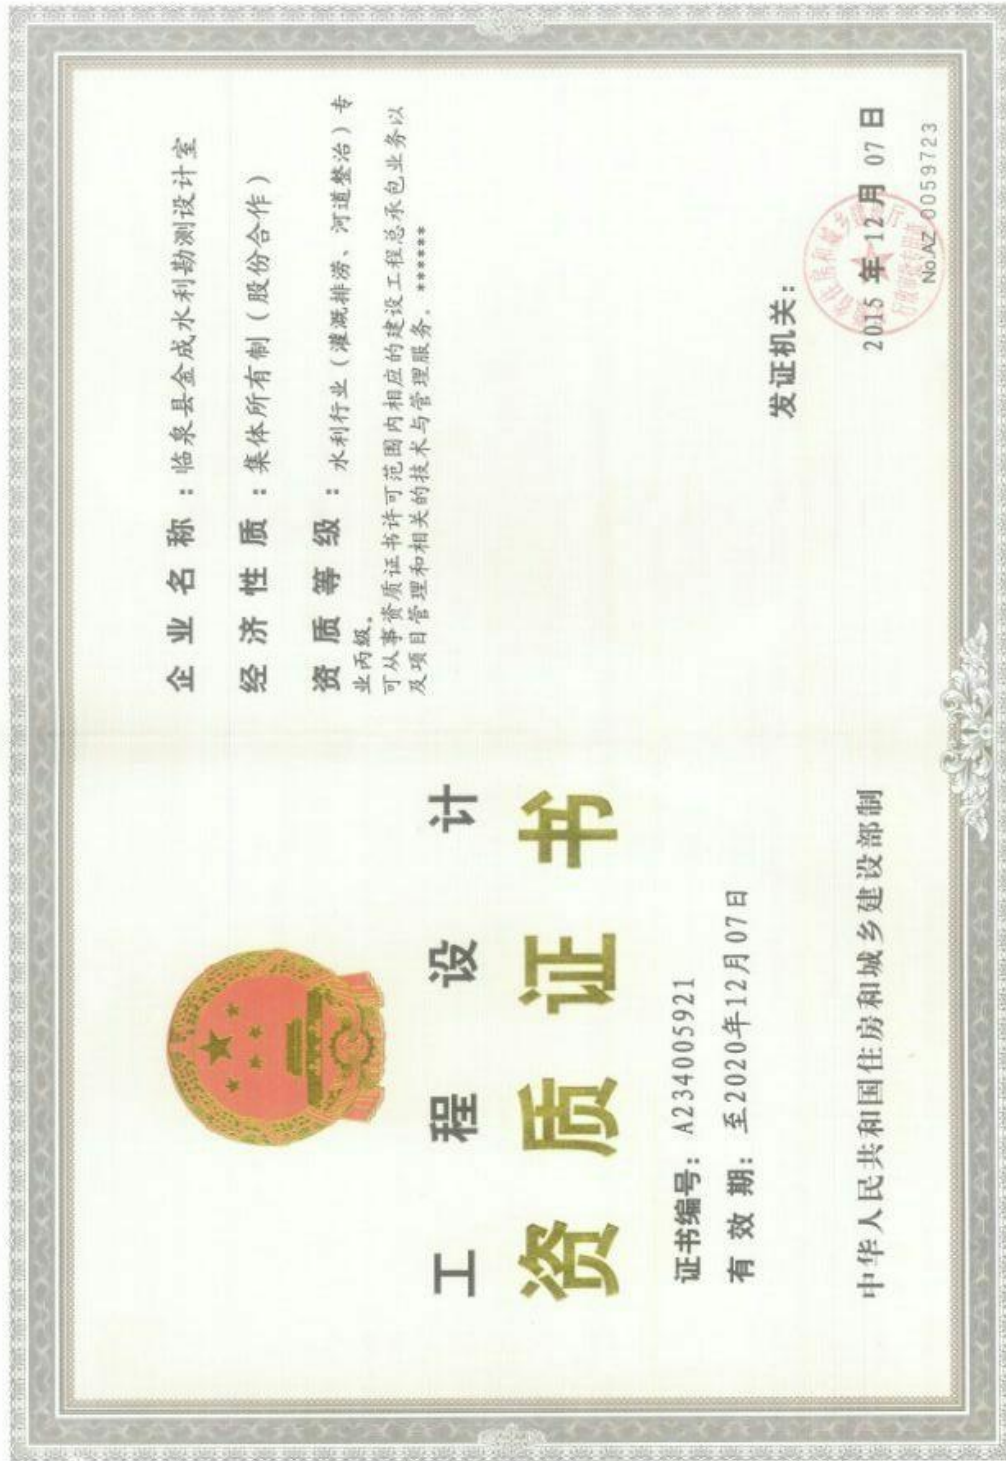 工程设计
资质证书
证书编号：A234005921
有效期：至2020年12月07日
中华人民共和国住房和城乡建设部制
企业名称：临泉县金成水利勘测设计室
经济性质：集体所有制（股份合作）
资质等级：水利行业（灌溉排涝、河道整治）专
业丙级。
可从事资质证书许可范围内相应的建设工程总承包业务以
及项目管理和相关的技术与管理服务。******
发证机关：
2015年12月07日
No.AZ 0059723